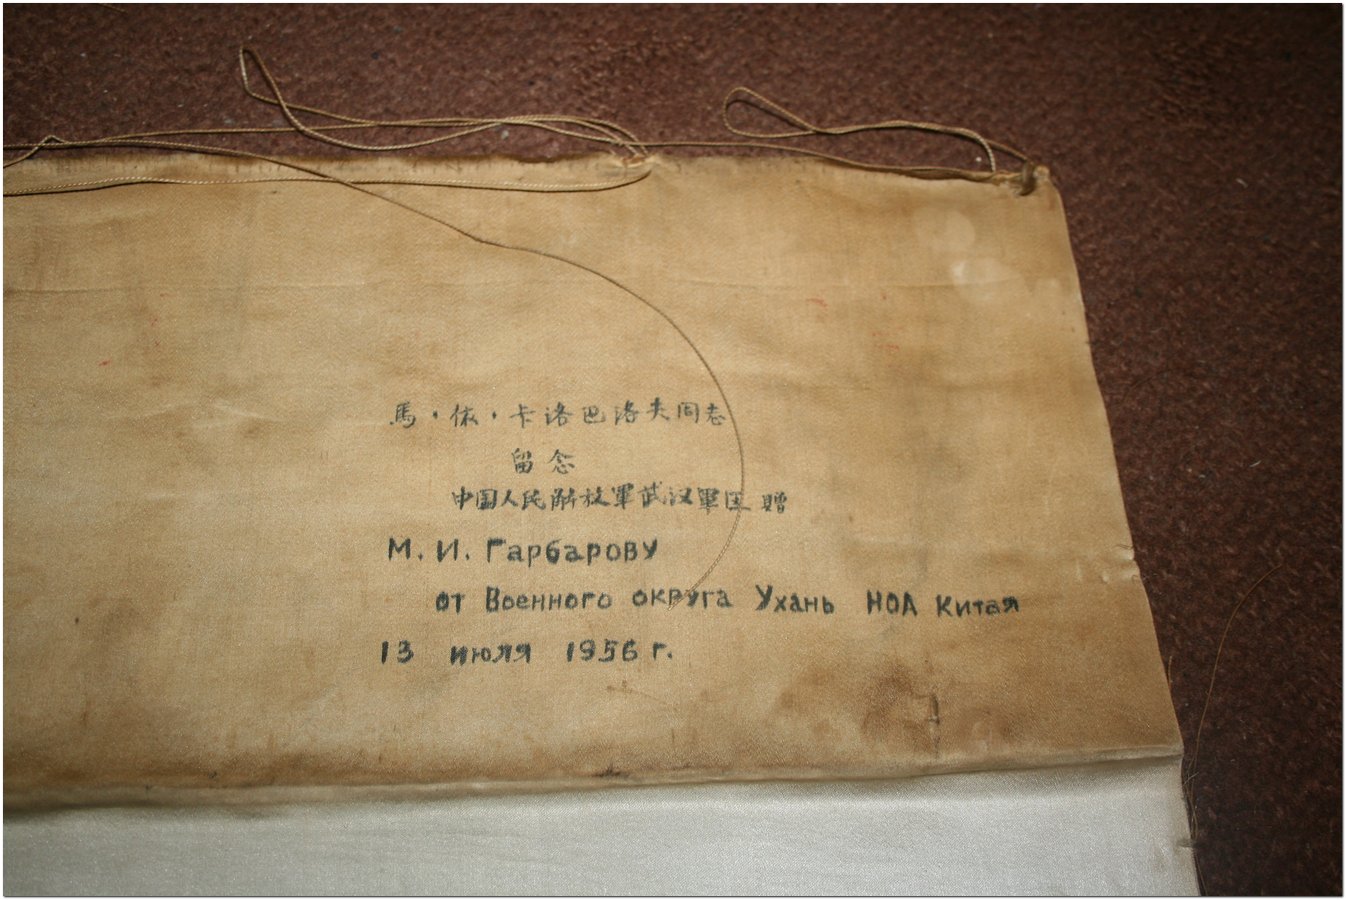 馬·依·卡洛巴洛夫同志
留念
中国人民解放軍武汉軍区 贈
М. И. Гарбарову
от Военного округа Ухань НОА Китая
13 июля 1956 г.